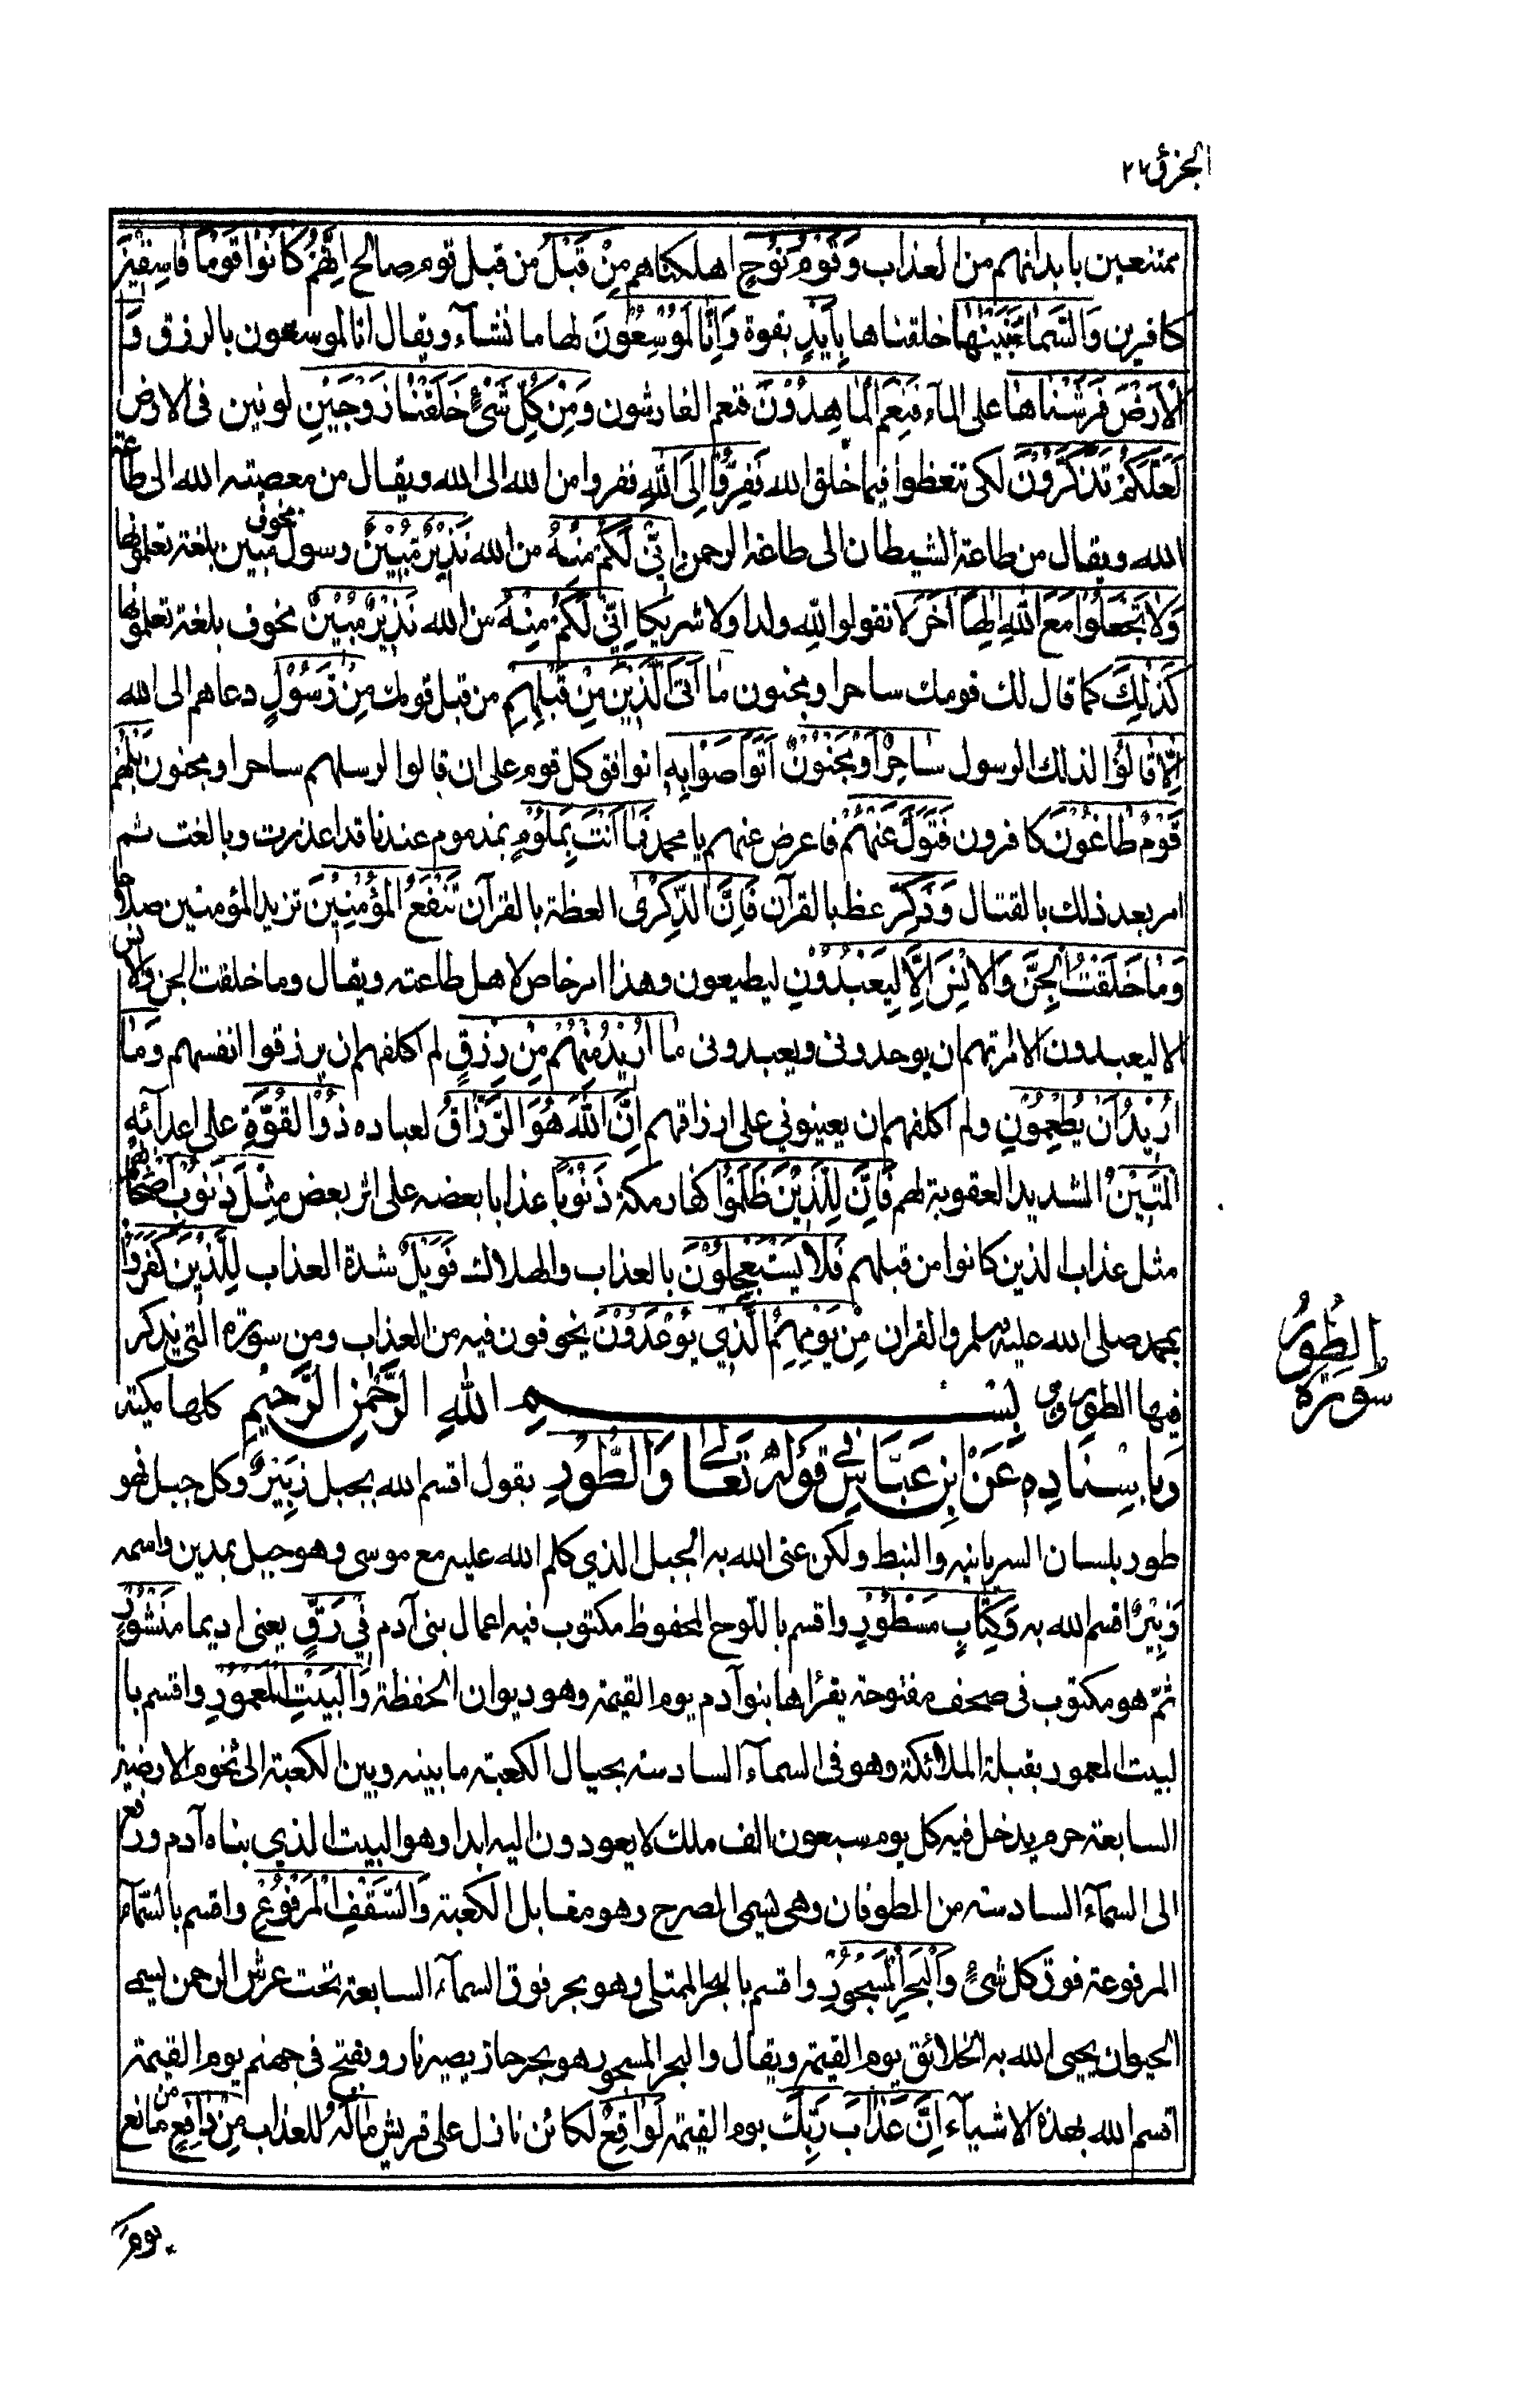 الجزؤ ٢٧
ممتنعين بابدانهم من العذاب وَقَوْمَ نُوْحٍ اهلكناهم مِنْ قَبْلُ من قبل قوم صالح اِنَّهُمْ كَانُوْا قَوْمًا فَاسِقِيْنَ
كافرين وَالسَّمَاءَ بَنَيْنٰهَا خلقناها بِاَيْدٍ بقوة وَاِنَّا لَمُوْسِعُوْنَ لها ما نشآء ويقال انا لموسعون بالرزق وَا
لْاَرْضَ فَرَشْنَاهَا على المآء فَنِعْمَ الْمَاهِدُوْنَ فنعم الفارشون وَمِنْ كُلِّ شَىْءٍ خَلَقْنَا زَوْجَيْنِ لونين فى الارض
لَعَلَّكُمْ تَذَكَّرُوْنَ لكى تتعظوا فيما خلق الله فَفِرُّوْا اِلَى اللهِ ففروا من الله الى الله ويقال من معصيته الله الى طاعة
الله ويقال من طاعة الشيطان الى طاعة الرحمن اِنِّىْ لَكُمْ مِنْهُ من الله نَذِيْرٌ مُّبِيْنٌ رسول مخوف مبين بلغة تعلمونها
وَلَا تَجْعَلُوْا مَعَ اللهِ اِلٰهًا اٰخَرَ لا تقولوا لله ولدا ولا شريكا اِنِّىْ لَكُمْ مِنْهُ من الله نَذِيْرٌ مُّبِيْنٌ مخوف بلغة تعلمونها
كَذٰلِكَ كما قال لك قومك ساحر او مجنون مَا اَتَى الَّذِيْنَ مِنْ قَبْلِهِمْ من قبل قومك مِنْ رَسُوْلٍ دعاهم الى الله
اِلَّا قَالُوْا لذلك الرسول سَاحِرٌ اَوْ مَجْنُوْنٌ اَتَوَاصَوْا بِهٖ اتوافق كل قوم على ان قالوا لرسلهم ساحر او مجنون بَلْ هُمْ
قَوْمٌ طَاغُوْنَ كافرون فَتَوَلَّ عَنْهُمْ فاعرض عنهم يا محمد فَمَا اَنْتَ بِمَلُوْمٍ بمذموم عندنا قد اعذرت وبالغت ثم
امر بعد ذلك بالقتال وَذَكِّرْ عظ بالقرآن فَاِنَّ الذِّكْرٰى العظة بالقرآن تَنْفَعُ الْمُؤْمِنِيْنَ تزيد المؤمنين صلاحا
وَمَا خَلَقْتُ الْجِنَّ وَالْاِنْسَ اِلَّا لِيَعْبُدُوْنِ ليطيعون وهذا امر خاص لاهل طاعته ويقال وما خلقت الجن والانس
الا ليعبدون الا امرتهم ان يوحدونى ويعبدونى مَا اُرِيْدُ مِنْهُمْ مِنْ رِزْقٍ لم اكلفهم ان يرزقوا انفسهم وَمَا
اُرِيْدُ اَنْ يُطْعِمُوْنِ ولم اكلفهم ان يعينوني على ارزاقهم اِنَّ اللهَ هُوَ الرَّزَّاقُ لعباده ذُوْ الْقُوَّةِ على اعدآئه
الْمَتِيْنُ الشديد العقوبة لهم فَاِنَّ لِلَّذِيْنَ ظَلَمُوْا كفار مكة ذَنُوْبًا عذابا بعضه على اثر بعض مِثْلَ ذَنُوْبِ اَصْحَابِهِمْ
مثل عذاب الذين كانوا من قبلهم فَلَا يَسْتَعْجِلُوْنَ بالعذاب والهلاك فَوَيْلٌ شدة العذاب لِلَّذِيْنَ كَفَرُوْا
بمحمد صلى الله عليه وسلم والقران مِنْ يَوْمِهِمُ الَّذِي يُوْعَدُوْنَ يخوفون فيه من العذاب ومن سورته التى يذكر
فيها الطور وهى بِسْمِ اللهِ الرَّحْمٰنِ الرَّحِيْمِ كلها مكية
وَبِاِسْنَادِهٖ عَنْ ابْنِ عَبَّاسٍ فِي قَوْلِهٖ تَعَالٰى وَالطُّوْرِ يقول اقسم الله بجبل زَبِيْرٌ وكل جبل فهو
طور بلسان السريانيه والنبط ولكن عنى الله به الجبل الذي كلم الله عليه مع موسى وهو جبل بمدين واسمه
زَبِيْرٌ اقسم الله به وَكِتَابٍ مَسْطُوْرٍ واقسم باللّوح المحفوظ مكتوب فيه اعمال بنى آدم فِيْ رَقٍّ يعنى اديما مَنْشُوْرٍ
ثمّ هو مكتوب فى صحف مفتوحة يقرأها بنو آدم يوم القيمة وهو ديوان الحفظة وَالْبَيْتِ الْمَعْمُوْرِ واقسم با
لبيت المعمور بقبلة الملائكة وهو فى السمآء السادسة بحيال الكعبة ما بينه وبين الكعبة الى تخوم الارضين
السابعة حرم يدخل فيه كل يوم سبعون الف ملك لا يعودون اليه ابدا وهو البيت الذي بناه آدم ورفع
الى السمآء السادسة من الطوفان وهى يسمى الصرح وهو مقابل الكعبة وَالسَّقْفِ الْمَرْفُوْعِ واقسم بالسّمآء
المرفوعة فوق كل شىءٍ وَالْبَحْرِ الْمَسْجُوْرِ واقسم بالبحر الممتلى وهو بحر فوق السمآء السابعة تحت عرش الرحمن يسمى
الحيوان يحيى الله به الخلائق يوم القيمة ويقال والبحر المسجور هو بحر حار يصير نار ويفتح فى جهنم يوم القيمة
اقسم الله بهذه الاشيآء اِنَّ عَذَابَ رَبِّكَ يوم القيمة لَوَاقِعٌ لكائن نازل على قريش مَا لَهٗ للعذاب مِنْ دَافِعٍ من مانع
سورة الطُّوْرِ
يوم